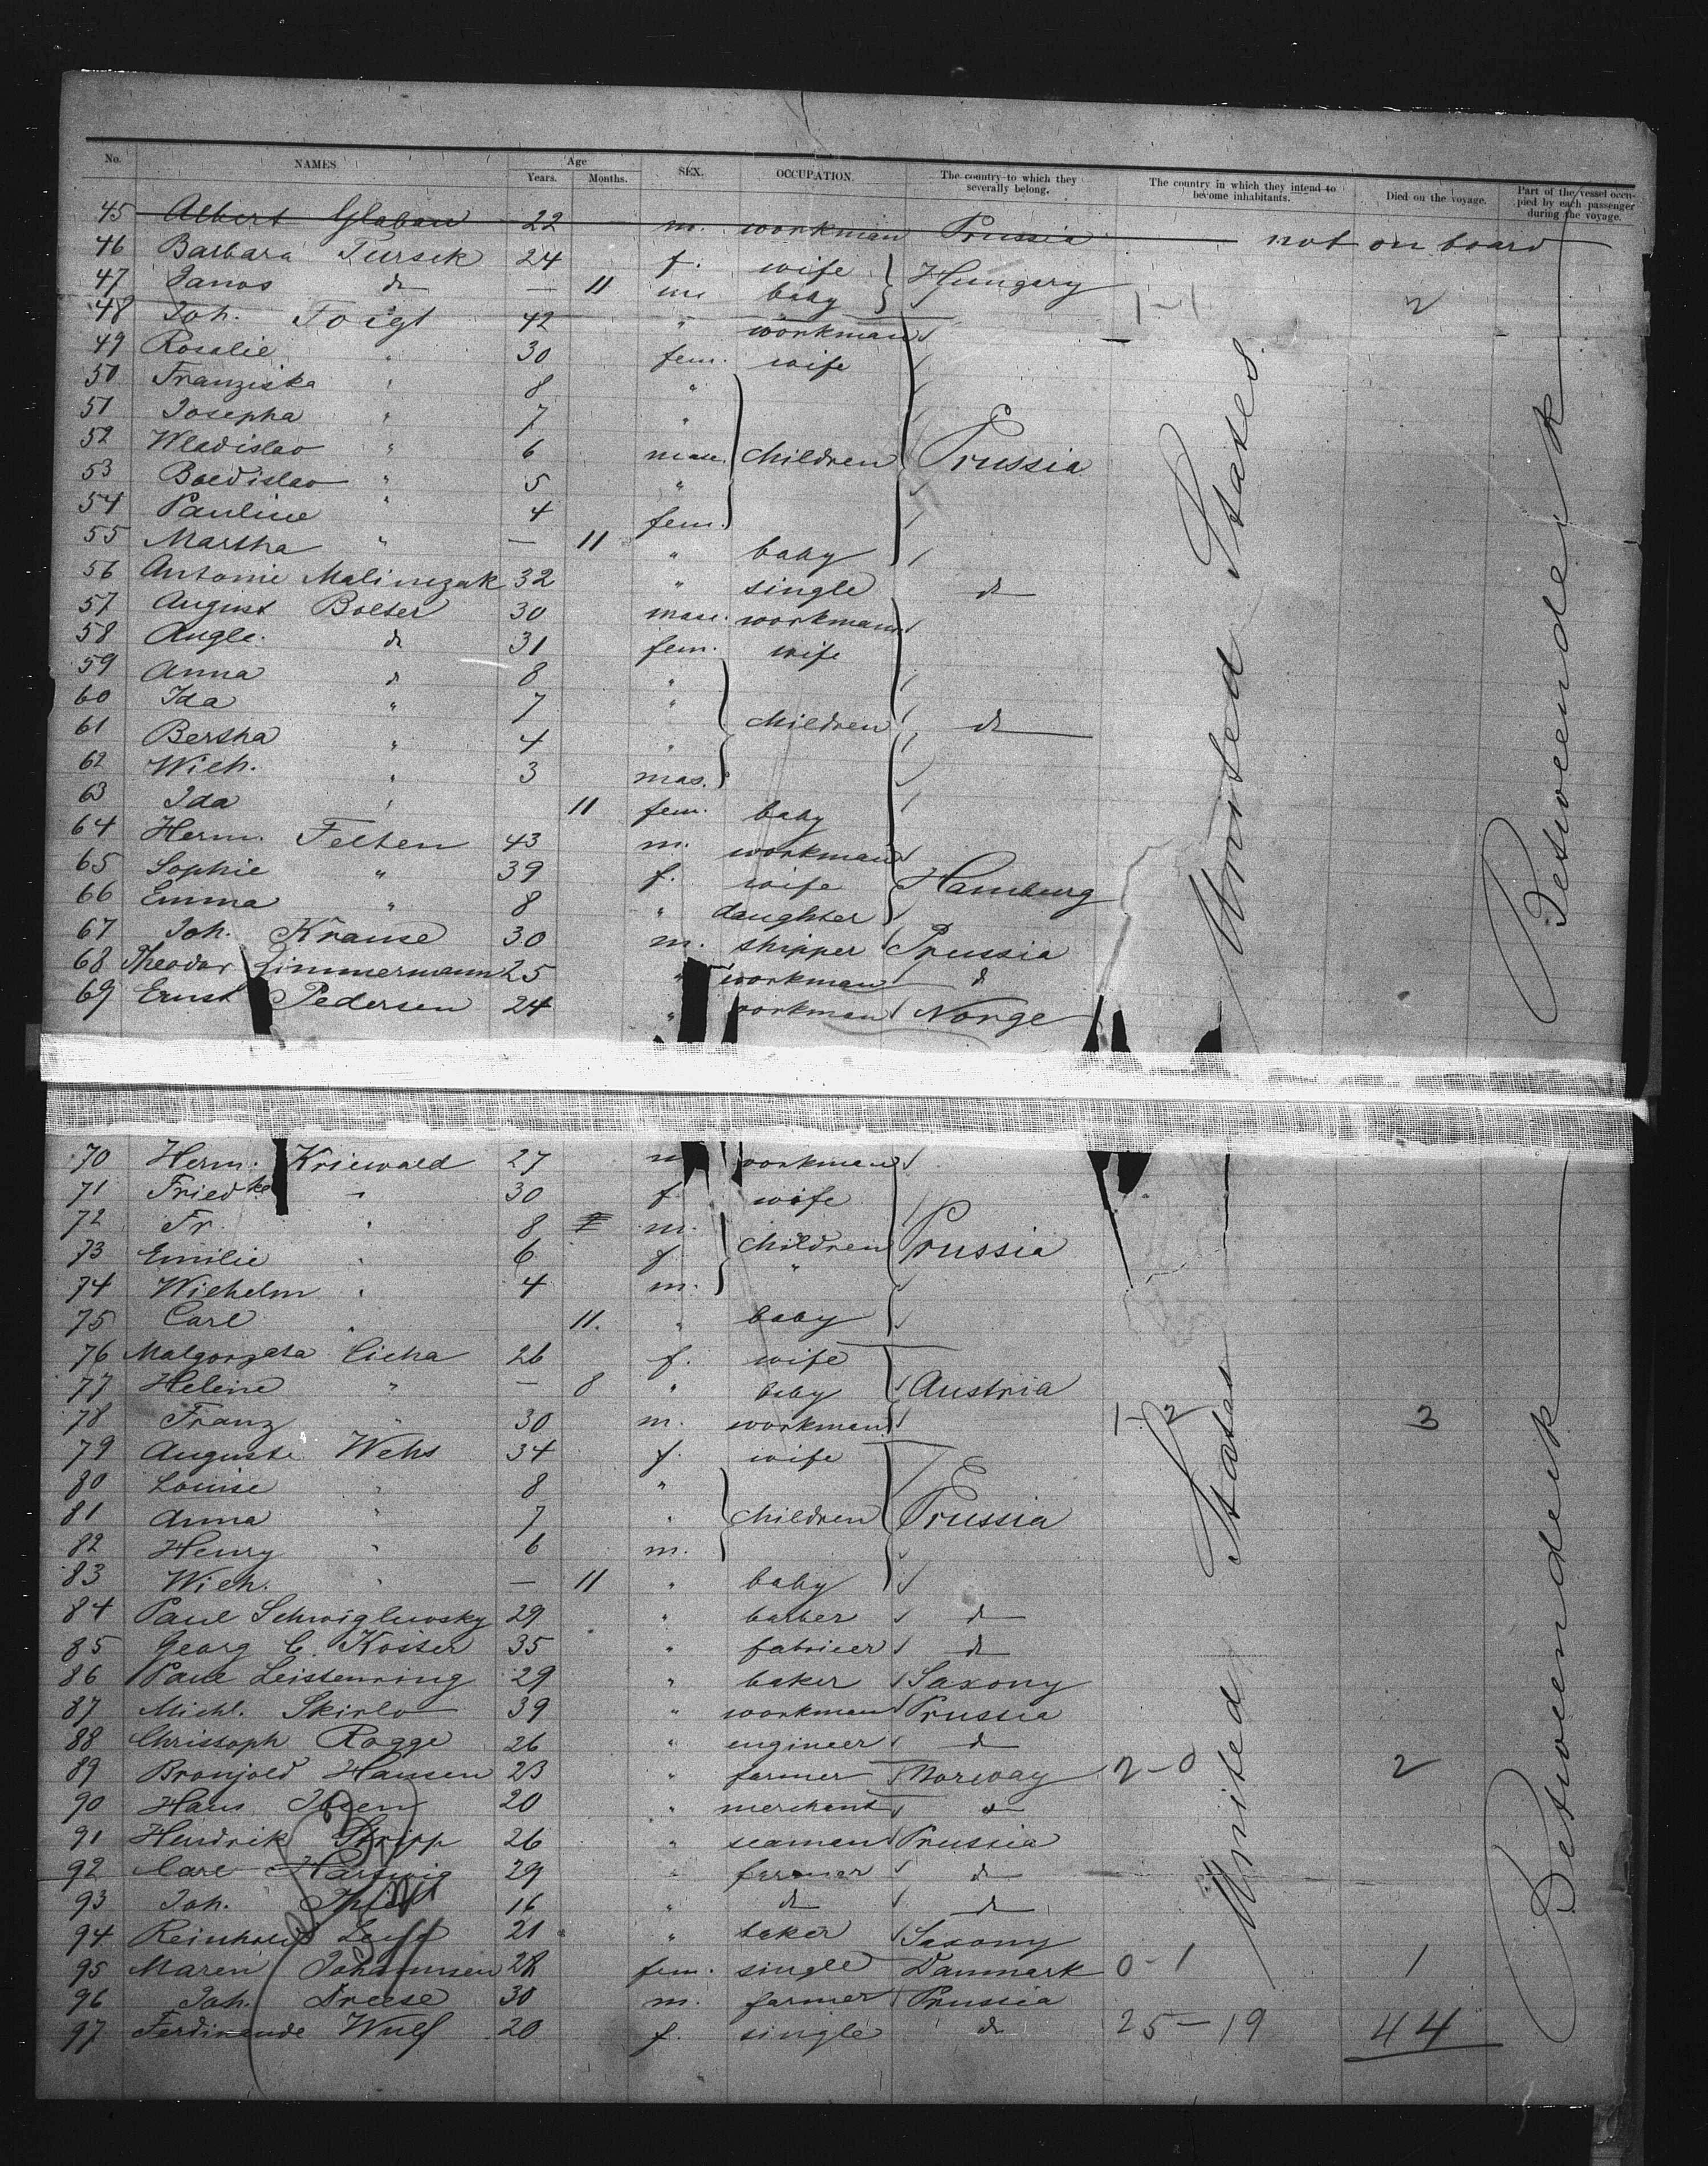 No. NAMES Age Years. Months. SEX. OCCUPATION. The country to which they severally belong. The country in which they intend to become inhabitants. Died on the voyage. Part of the vessel occupied by each passenger during the voyage.
45 Albert 22 m. workman Prussia not on board
46 Barbara Tursek 24 f. wife Hungary
47 Janos do — 11 m baby 1-1 2
48 Joh. Foigt 42 " workman
49 Rosalie " 30 fem. wife
50 Franziska " 8 "
51 Josepha " 7 "
52 Wladislao " 6 masc. children Prussia
53 Boedislao " 5 "
54 Pauline " 4 fem.
55 Martha " — 11 " baby
56 Antonie 32 " single do
57 August Bolter 30 masc. workman
58 Augle. do 31 fem. wife
59 Anna do 8 "
60 Ida " 7 " children do
61 Bertha " 4 "
62 Wilh. " 3 mas.
63 Ida " 11 fem. baby
64 Herm. Felten 43 m. workman
65 Sophie " 39 f. wife Hamburg
66 Emma " 8 " daughter
67 Joh. Krause 30 m. shipper Prussia
68 Theodor Zimmermann 25 " workman do
69 Ernst Pedersen 24 " workman Norge
United States
Betweendeck
70 Herm. Kriewald 27 m workman
71 Friedke " 30 f wife
72 Fr. " 8 m. children Prussia
73 Emilie " 6 f "
74 Wilhelm " 4 m.
75 Carl " 11. " baby
76 Malgorzata Cicha 26 f. wife
77 Helene " — 8 " baby Austria
78 Franz " 30 m. workman 1-2 3
79 Auguste Wehs 34 f. wife
80 Louise " 8 "
81 Anna " 7 " children Prussia
82 Henry " 6 m.
83 Wilh. " — 11 " baby
84 Paul 29 " barber do
85 Georg C. Koster 35 " fabricer do
86 Paul Leistenring 29 " baker Saxony
87 Michl. Skirlo 39 " workman Prussia
88 Christoph Rogge 26 " engineer do
89 Bronjold Hansen 23 " farmer Norway 2-0 2
90 Hans Ibsen 20 " merchant do
91 Hendrik Stripp 26 " seaman Prussia
92 Carl Hartwig 29 " farmer do
93 Joh. 16 " do do
94 Reinhold 21 " baker Saxony
95 Maren Johannsen 28 fem. single Danmark 0-1 1
96 Joh. Dreese 30 m. farmer Prussia
97 Ferdinande Wulf 20 f. single do 25-19 44
United States
Betweendeck